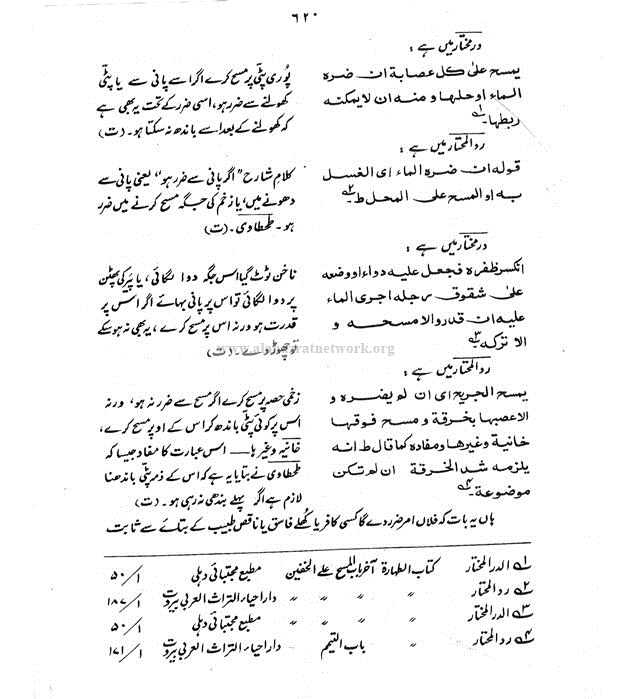 ۶۲۰
درمختار میں ہے :
یمسح علیٰ کل عصابة ان ضرہ
الماء اوحلہا و منہ ان لایمکنہ
ربطہا۔۱؎
پُوری پٹّی پر مسح کرے اگر اسے پانی سے یا پٹّی
کھولنے سے ضرر ہو، اسی ضرر کے تحت یہ بھی ہے
کہ کھولنے کے بعد اسے باندھ نہ سکتا ہو۔ (ت)
ردالمحتار میں ہے :
قولہ ان ضرہ الماء ای الغسل
بہ او المسح علی المحل ط۔۲؎
کلامِ شارح "اگر پانی سے ضرر ہو" یعنی پانی سے
دھونے میں، یا زخم کی جگہ مسح کرنے میں ضرر
ہو۔ طحطاوی۔ (ت)
درمختار میں ہے :
انکسر ظفرہ فجعل علیہ دواء اووضعہ
علیٰ شقوق رجلہ اجری الماء
علیہ ان قدر والا مسحہ و
الا ترکہ۔۳؎
ناخن ٹوٹ گیا اس جگہ دوا لگائی، یا پیر کی پھٹن
پر دوا لگائی تو اس پر پانی بہائے اگر اس پر
قدرت ہو ورنہ اس پر مسح کرے، یہ بھی نہ ہوسکے
تو چھوڑ دے۔ (ت)
www.alahazratnetwork.org
ردالمحتار میں ہے :
یمسح الجریح ای ان لم یضرہ و
الا عصبہا بخرقة و مسح فوقہا
خانیة وغیرہا و مفادہ کما قال ط انہ
یلزمہ شد الخرقة ان لم تکن
موضوعة۔۴؎
زخمی حصہ پر مسح کرے اگر مسح سے ضرر نہ ہو، ورنہ
اس پر کوئی پٹّی باندھ کر اس کے اوپر مسح کرے،
خانیہ وغیرہا— اس عبارت کا مفاد جیسا کہ
طحطاوی نے بتایا یہ ہے کہ اس کے ذمہ پٹّی باندھنا
لازم ہے اگر پہلے بندھی نہ رہی ہو۔ (ت)
ہاں یہ بات کہ فلاں امر ضرر دے گا کسی کافر یا کھُلے فاسق یا ناقص طبیب کے بتائے سے ثابت
۱؎ الدرالمختار کتاب الطہارۃ آخر باب المسح علے الخفین مطبع مجتبائی دہلی ۱/۵۰
۲؎ ردالمحتار " " " " داراحیاء التراث العربی بیروت ۱/۱۸۷
۳؎ الدرالمختار " " " " مطبع مجتبائی دہلی ۱/۵۰
۴؎ ردالمحتار " باب التیمم داراحیاء التراث العربی بیروت ۱/۱۷۱